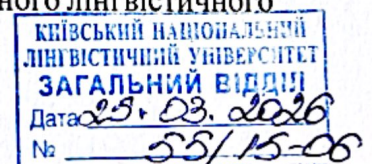 ного лінгвістичного
КИЇВСЬКИЙ НАЦІОНАЛЬНИЙ
ЛІНГВІСТИЧНИЙ УНІВЕРСИТЕТ
ЗАГАЛЬНИЙ ВІДДІЛ
Дата 25. 03. 2026
№ 55/15-06